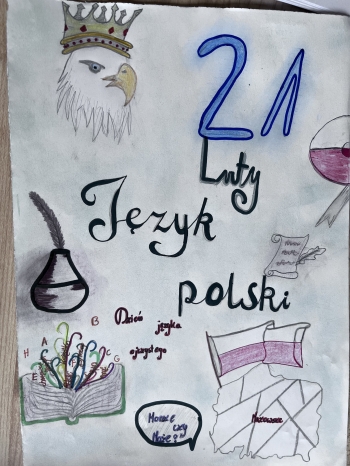 21
Luty
Język
polski
Dzień
języka
ojczystego
B
A
H
C
G
E
Może czy
Mazowsze